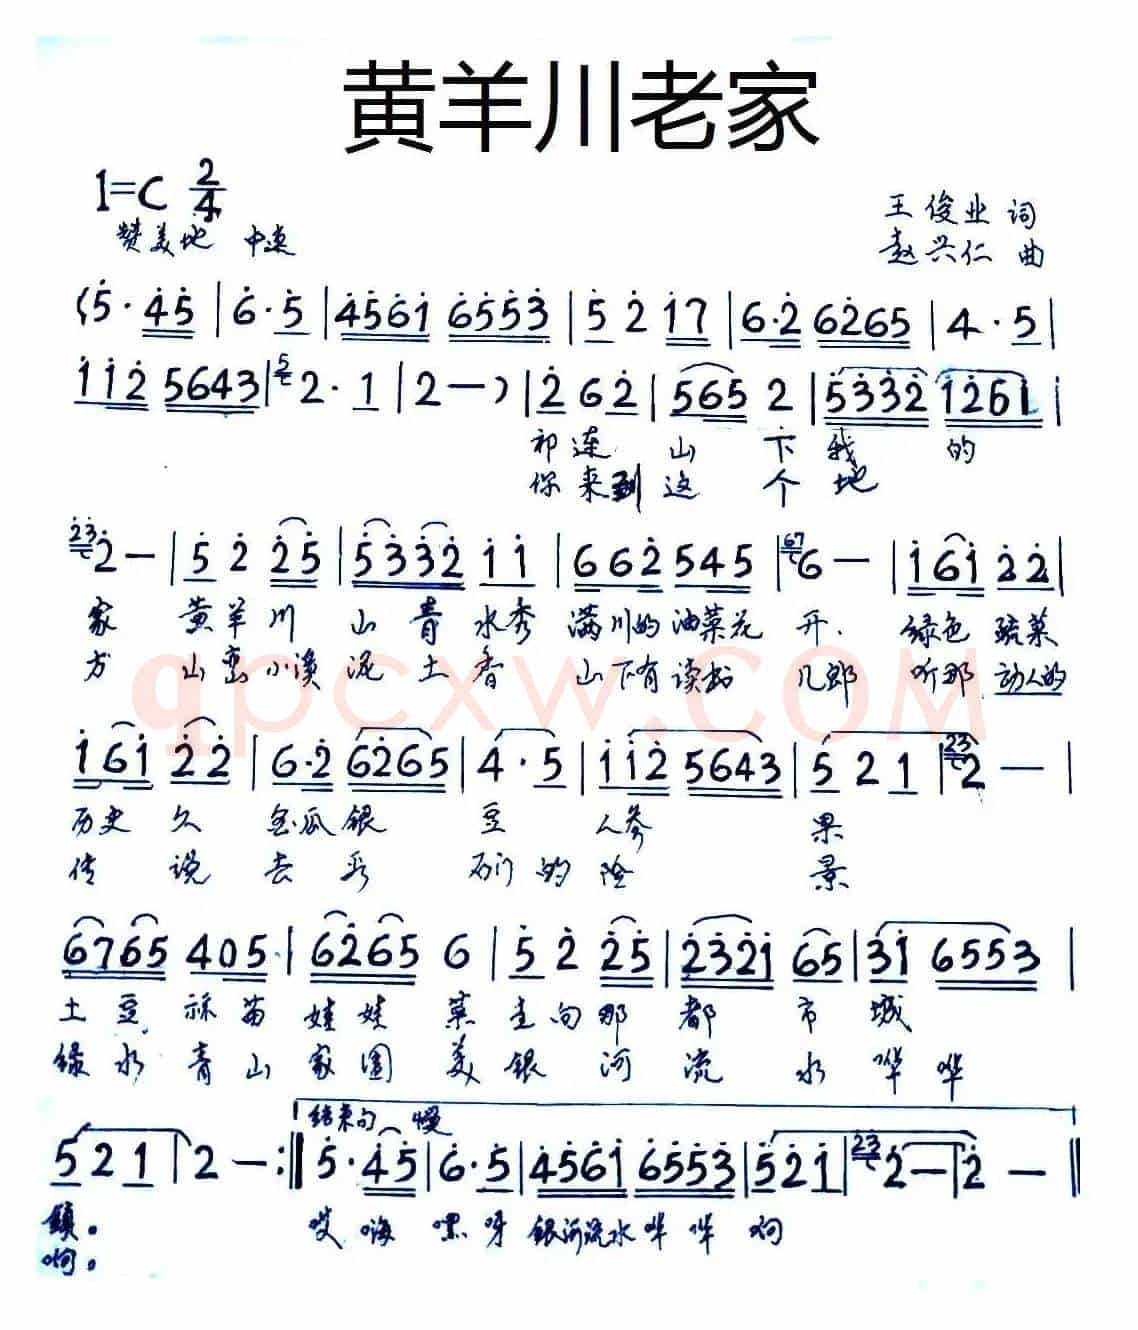 黄羊川老家
1=C 2/4
王俊业 词
赞美地 中速
赵兴仁 曲
(5·45|6·5|4561 6553|5 2 17|6·2 6265|4·5|
112 5643|5 2·1|2—)|2 6 2|565 2|5332 1261|
祁连山下我的
你来到这个地
23 2—|5 2 25|5332 1 1|662 545|67 6—|161 22|
家 黄羊川 山青水秀 满川的油菜花 开. 绿色蔬菜
方 山峦小溪泥土香 山下有读书 儿郎 听那动人的
qpcxw.com
161 22|6·2 6265|4·5|112 5643|5 2 1|23 2—|
历史久 金瓜银豆人参果
传说去看石门的险景
6765 405·|6265 6|5 2 25|2321 65|31 6553|
土豆 苗娃娃菜走向那都市城
绿水青山家园美银河流水哗哗
结束句 慢
5 2 1|2—:‖5·45|6·5|4561 6553|5 2 1|23 2—|2—‖
镇。 哎嗨嘿呀银河流水哗哗啊
啊。